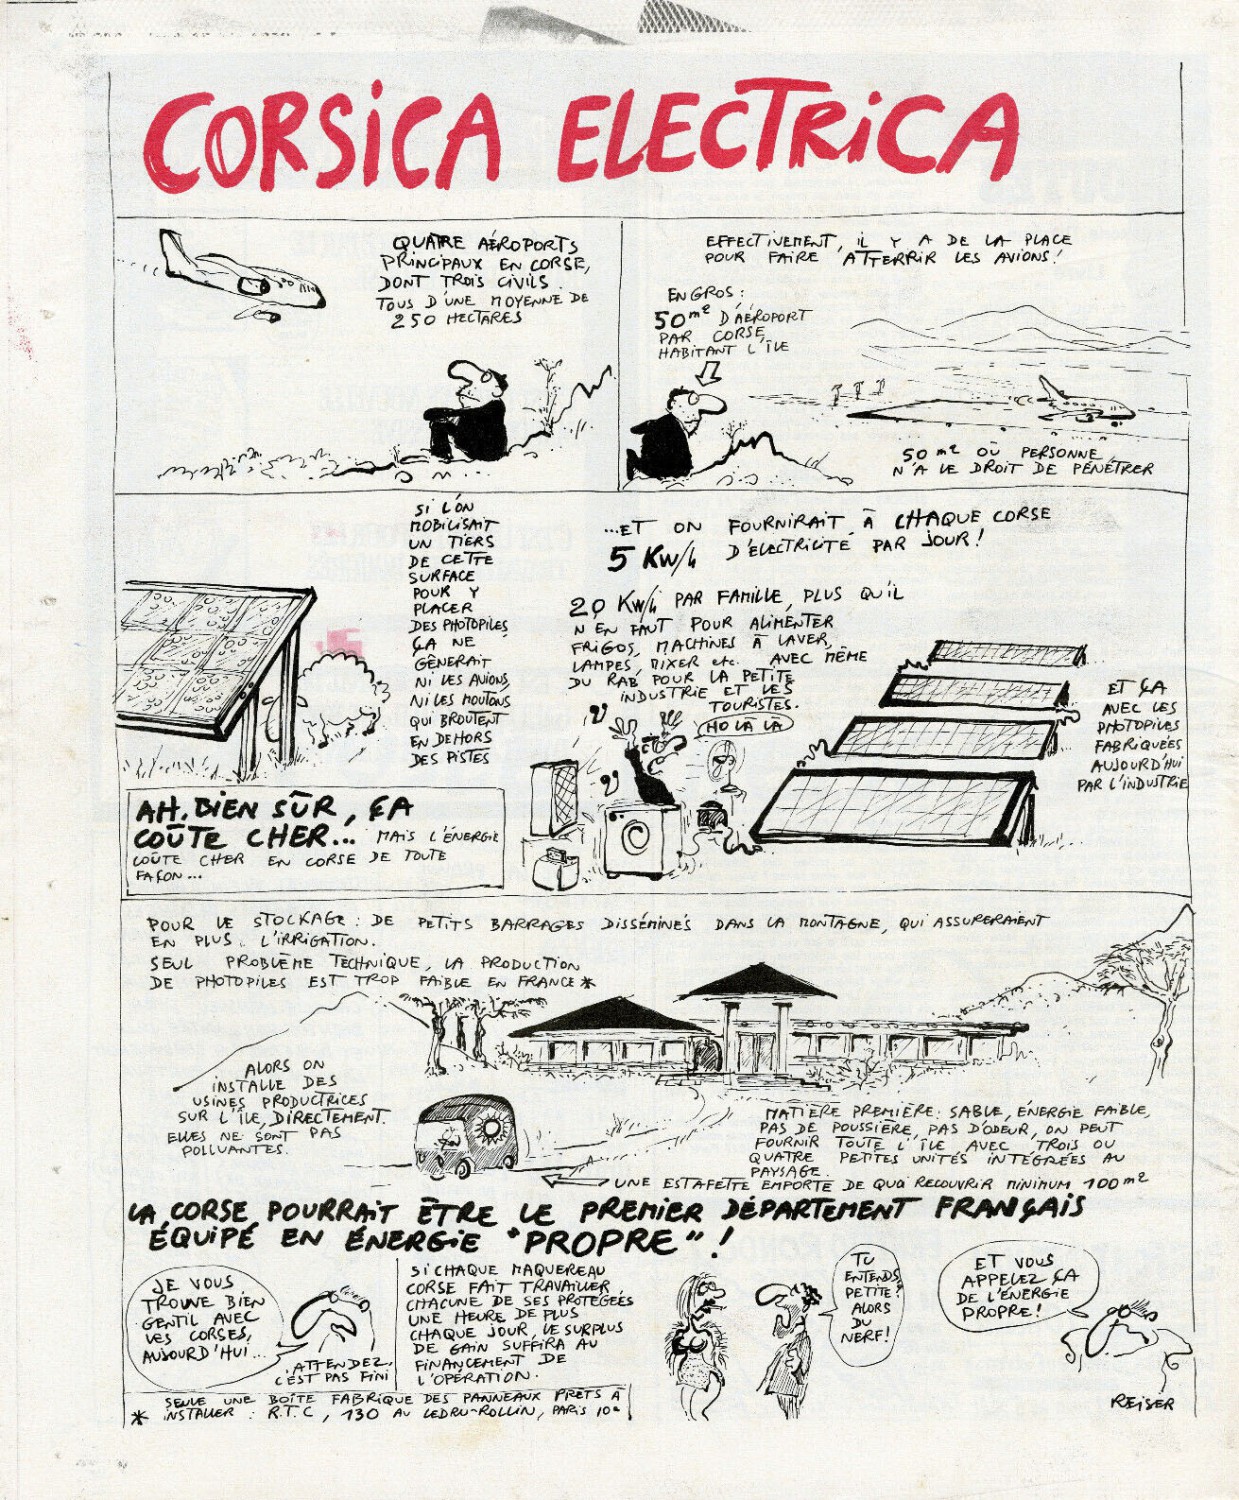 CORSICA ELECTRICA
QUATRE AÉROPORTS
PRINCIPAUX EN CORSE,
DONT TROIS CIVILS.
TOUS D'UNE MOYENNE DE
250 HECTARES
EFFECTIVEMENT, IL Y A DE LA PLACE
POUR FAIRE ATTERRIR LES AVIONS!
EN GROS:
50 m² D'AÉROPORT
PAR CORSE,
HABITANT L'ÎLE
50 m² OÙ PERSONNE
N'A LE DROIT DE PÉNÉTRER
SI L'ON
MOBILISAIT
UN TIERS
DE CETTE
SURFACE
POUR Y
PLACER
DES PHOTOPILES,
ÇA NE
GÊNERAIT
NI LES AVIONS,
NI LES MOUTONS,
QUI BROUTENT
EN DEHORS
DES PISTES
...ET ON FOURNIRAIT À CHAQUE CORSE
5 KW/h D'ÉLECTRICITÉ PAR JOUR!
20 KW/h PAR FAMILLE, PLUS QU'IL
N EN FAUT POUR ALIMENTER
FRIGOS, MACHINES À LAVER,
LAMPES, MIXER etc. AVEC MÊME
DU RAB POUR LA PETITE
INDUSTRIE ET LES
TOURISTES.
HO LÀ LÀ
ET ÇA
AVEC LES
PHOTOPILES
FABRIQUÉES
AUJOURD'HUI
PAR L'INDUSTRIE
AH, BIEN SÛR, ÇA
COÛTE CHER... MAIS L'ÉNERGIE
COÛTE CHER EN CORSE DE TOUTE
FAÇON...
POUR LE STOCKAGE: DE PETITS BARRAGES DISSÉMINÉS DANS LA MONTAGNE, QUI ASSURERAIENT
EN PLUS L'IRRIGATION.
SEUL PROBLÈME TECHNIQUE, LA PRODUCTION
DE PHOTOPILES EST TROP FAIBLE EN FRANCE *
ALORS ON
INSTALLE DES
USINES PRODUCTRICES
SUR L'ÎLE, DIRECTEMENT.
ELLES NE SONT PAS
POLLUANTES.
MATIÈRE PREMIÈRE: SABLE, ÉNERGIE FAIBLE,
PAS DE POUSSIÈRE, PAS D'ODEUR, ON PEUT
FOURNIR TOUTE L'ÎLE AVEC TROIS OU
QUATRE PETITES UNITÉS INTÉGRÉES AU
PAYSAGE.
UNE ESTAFETTE EMPORTE DE QUOI RECOUVRIR MINIMUM 100 m²
LA CORSE POURRAIT ÊTRE LE PREMIER DÉPARTEMENT FRANÇAIS
ÉQUIPÉ EN ÉNERGIE "PROPRE"!
JE VOUS
TROUVE BIEN
GENTIL AVEC
LES CORSES,
AUJOURD'HUI...
ATTENDEZ.
C'EST PAS FINI
SI CHAQUE MAQUEREAU
CORSE FAIT TRAVAILLER
CHACUNE DE SES PROTÉGÉES
UNE HEURE DE PLUS
CHAQUE JOUR, LE SURPLUS
DE GAIN SUFFIRA AU
FINANCEMENT DE
L'OPÉRATION.
TU
ENTENDS,
PETITE?
ALORS
DU
NERF!
ET VOUS
APPELEZ ÇA
DE L'ÉNERGIE
PROPRE!
REISER
* SEULE UNE BOÎTE FABRIQUE DES PANNEAUX PRÊTS À
INSTALLER: R.T.C, 130 AV LEDRU-ROLLIN, PARIS 10e